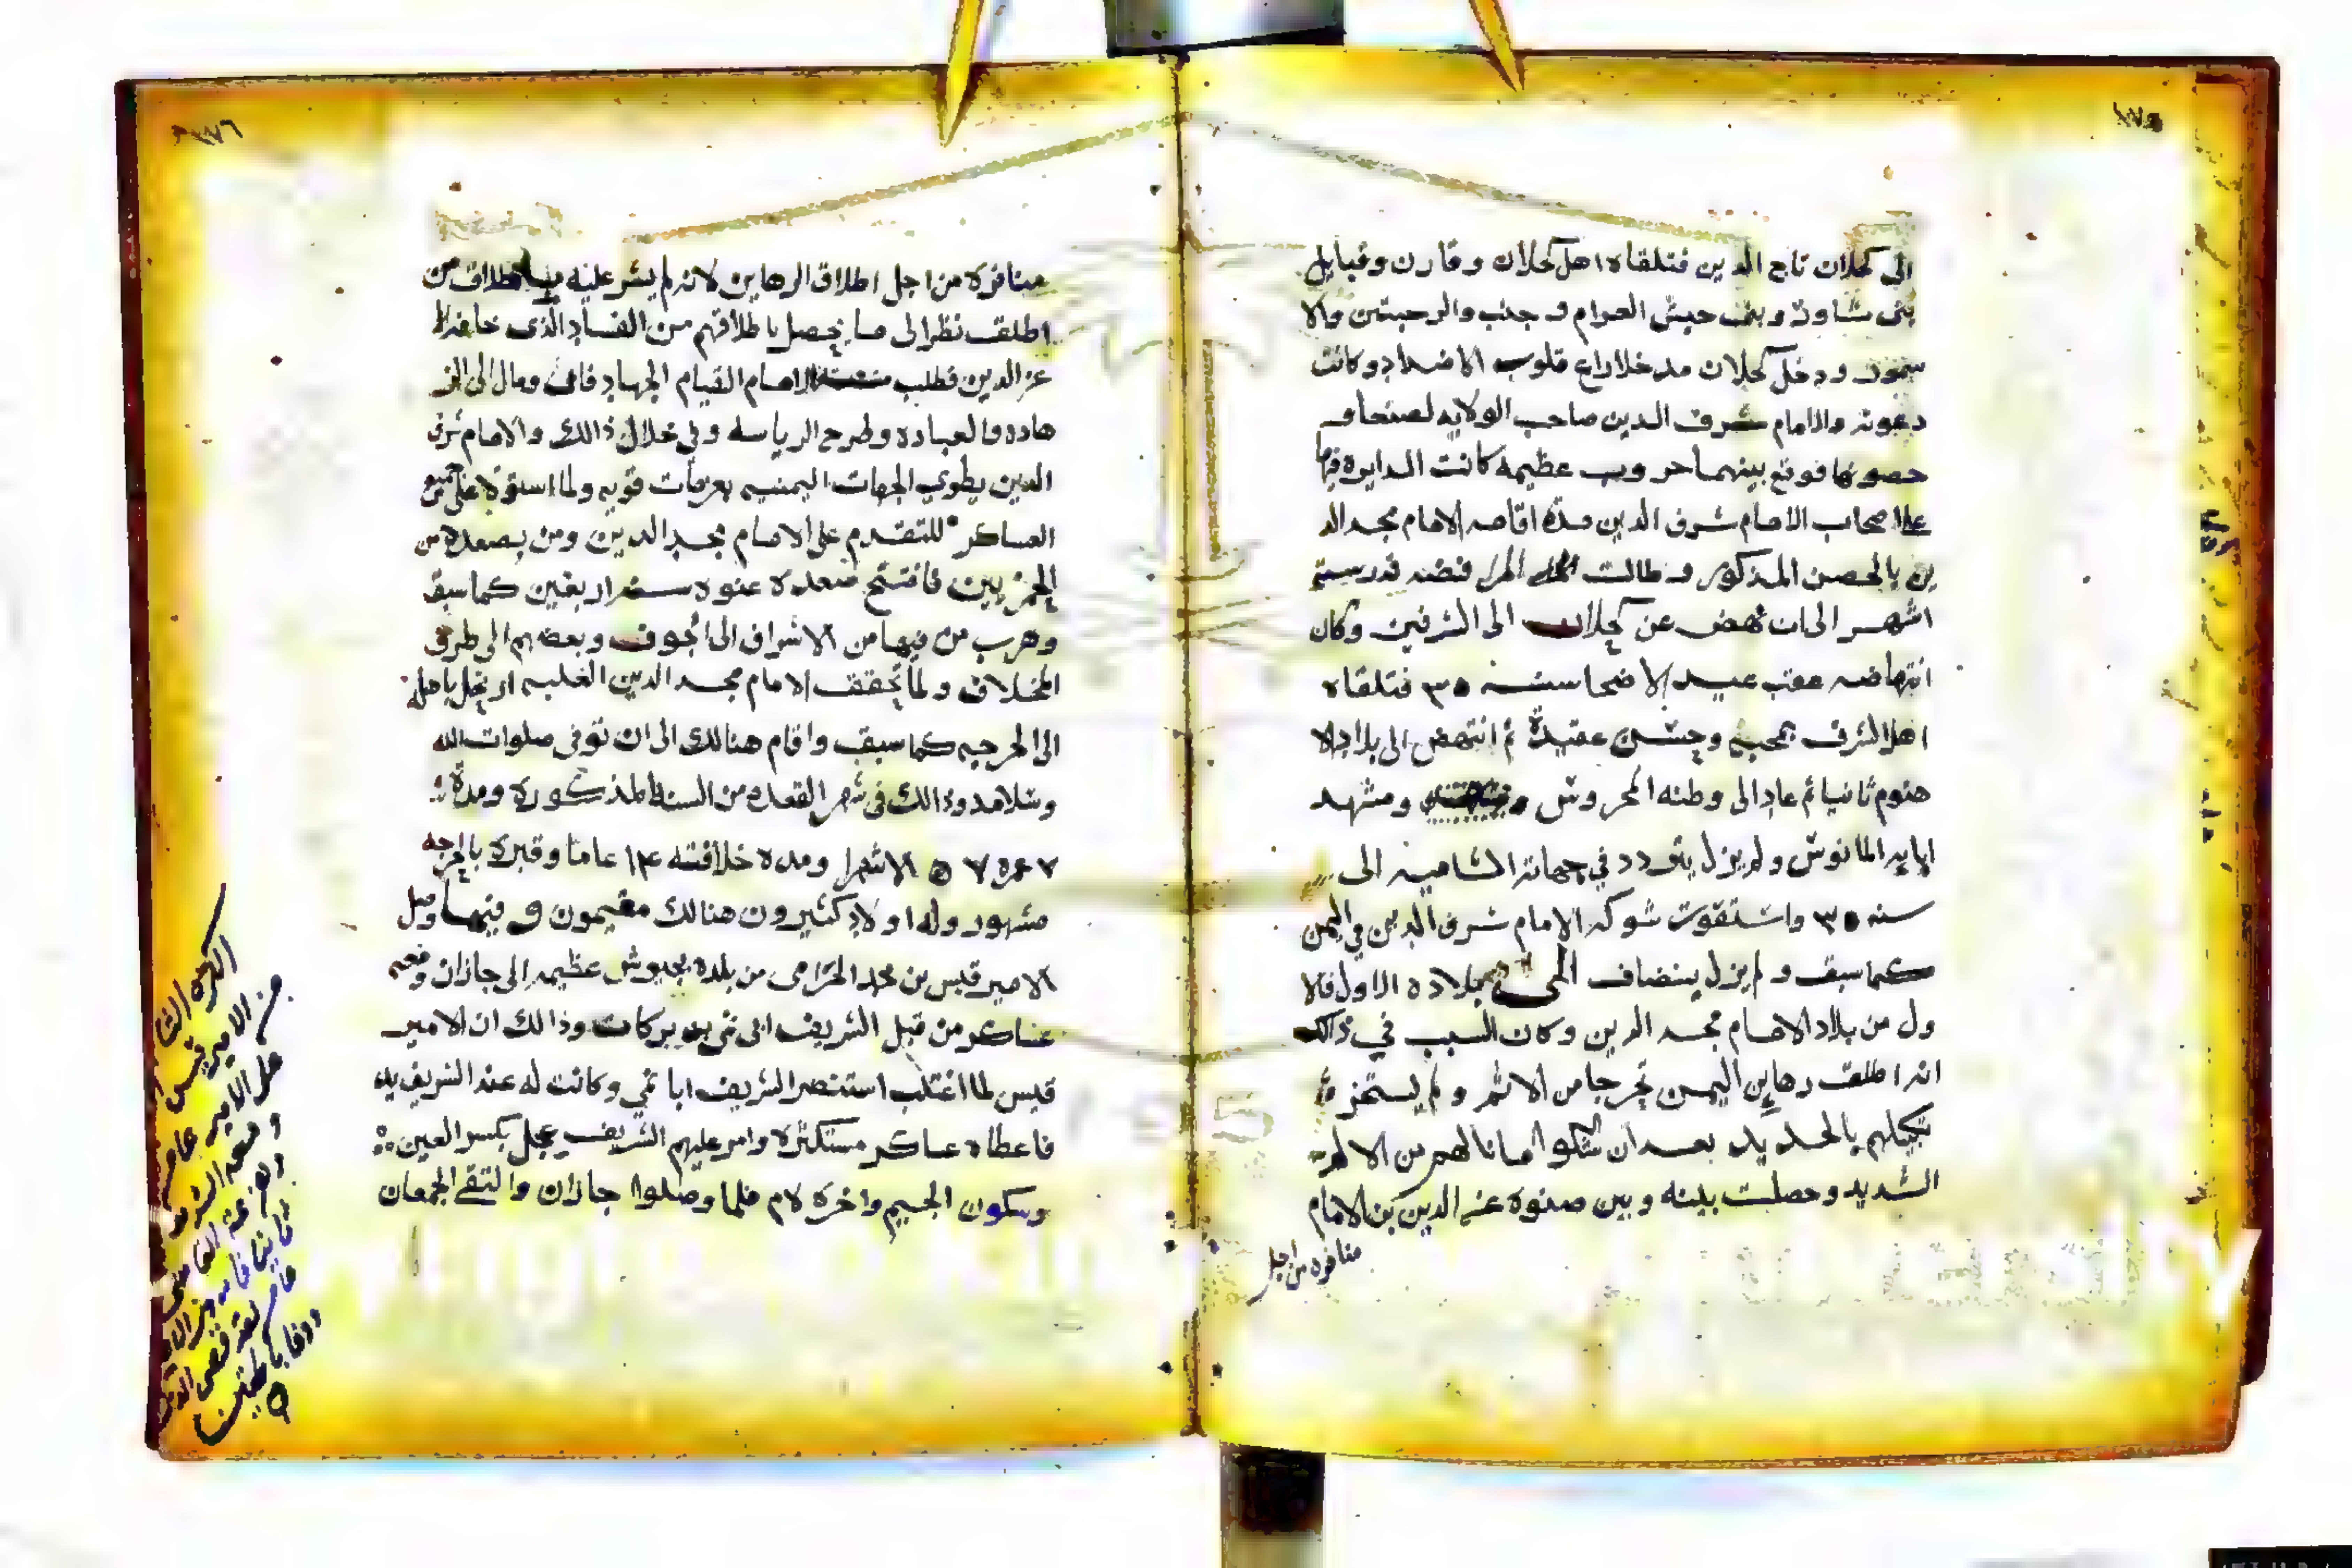 ١٧٥
الى كحلان تاج الدين فتلقاه اهل كحلان وقارن وقبايل
بنى شاور وبنى حبش العوام و جنب والرحبتين والا
سمور ودخل كحلان مدخلا راع قلوب الاضداد وكانت
دعوته والامام شرف الدين صاحب الولايه لصنعا و
حصونها فوقع بينهما حروب عظيمه كانت الدايره فيها
على اصحاب الامام شرف الدين مدة اقامه الامام مجد الد
ين بالحصن المذكور و طالت فنضنه قدر ستة
اشهر الى ان نهض عن كحلان الى الشرفين وكان
انتهاضه عقب عيد الاضحا سنه ٣٥ فتلقاه
اهل الشرف بمحبة وحسن عقيدة ثم انتهض الى بلاد الا
هنوم ثانيا ثم عاد الى وطنه المحروس ومشهد
ابايه المانوس ولم يزل يتردد في جهاته الشاميه الى
سنه ٣٥ واستقوت شوكه الامام شرف الدين في اليمن
كما سبق ولم يزل ينضاف الى بلاده الاول فالا
ول من بلاد الامام مجد الدين وكان السبب في ذالك
انه اطلق رهاين اليمن تحرجا من الاثم و لم يستجز
تكبيلهم بالحديد بعد ان شكوا اما نالهم من الالم
الشديد وحصلت بينه وبين صنوه عز الدين بن الامام
منافره من اجل
١٧٦
منافرة من اجل اطلاق الرهاين لانه لم يشر عليه باطلاق من
اطلقت نظرا الى ما يحصل باطلاقهم من الفساد الذى خافه
عز الدين فطلب الامام القيام الجهاد فابى ومال الى الز
هاده والعبادة وطرح الرياسه وفي خلال ذالك والامام شرف
الدين يطوي الجهات اليمنيه بعزمات قويه ولما استولا على
العساكر للتقدم على الامام مجد الدين ومن بصعده من
الحمزيين فافتتح صعده عنوه سنه اربعين كما سبق
وهرب من فيها من الاشراف الى الجوف وبعضهم الى طرف
المخلاف ولما تحقق الامام مجد الدين الغلبه ارتحل باهله
الى الحرجه كما سبق واقام هنالك الى ان توفى صلوات الله
وسلامه وذالك فى شهر القعده من السنة المذكوره ومدة
الاشهرا ومده خلافته ١٣ عاما وقبره بالحرجه
مشهور وله اولاد كثيرون هنالك مقيمون و فيها وصل
الامير قيس بن محمد الحرامى من بلده بجيوش عظيمه الى جازان ومعه
عساكر من قبل الشريف ابى نمى بن بركات وذالك ان الامير
قيس لما اغتلب استنصر الشريف ابا نمي وكانت له عند الشريف يد
فاعطاه عساكر مستكثره وامر عليهم الشريف عجل بكسر العين
وسكون الجيم واخره لام فلما وصلوا جازان والتقى الجمعان
الكره
من الامير قيس
على الامير عامر
ومعه الشريف